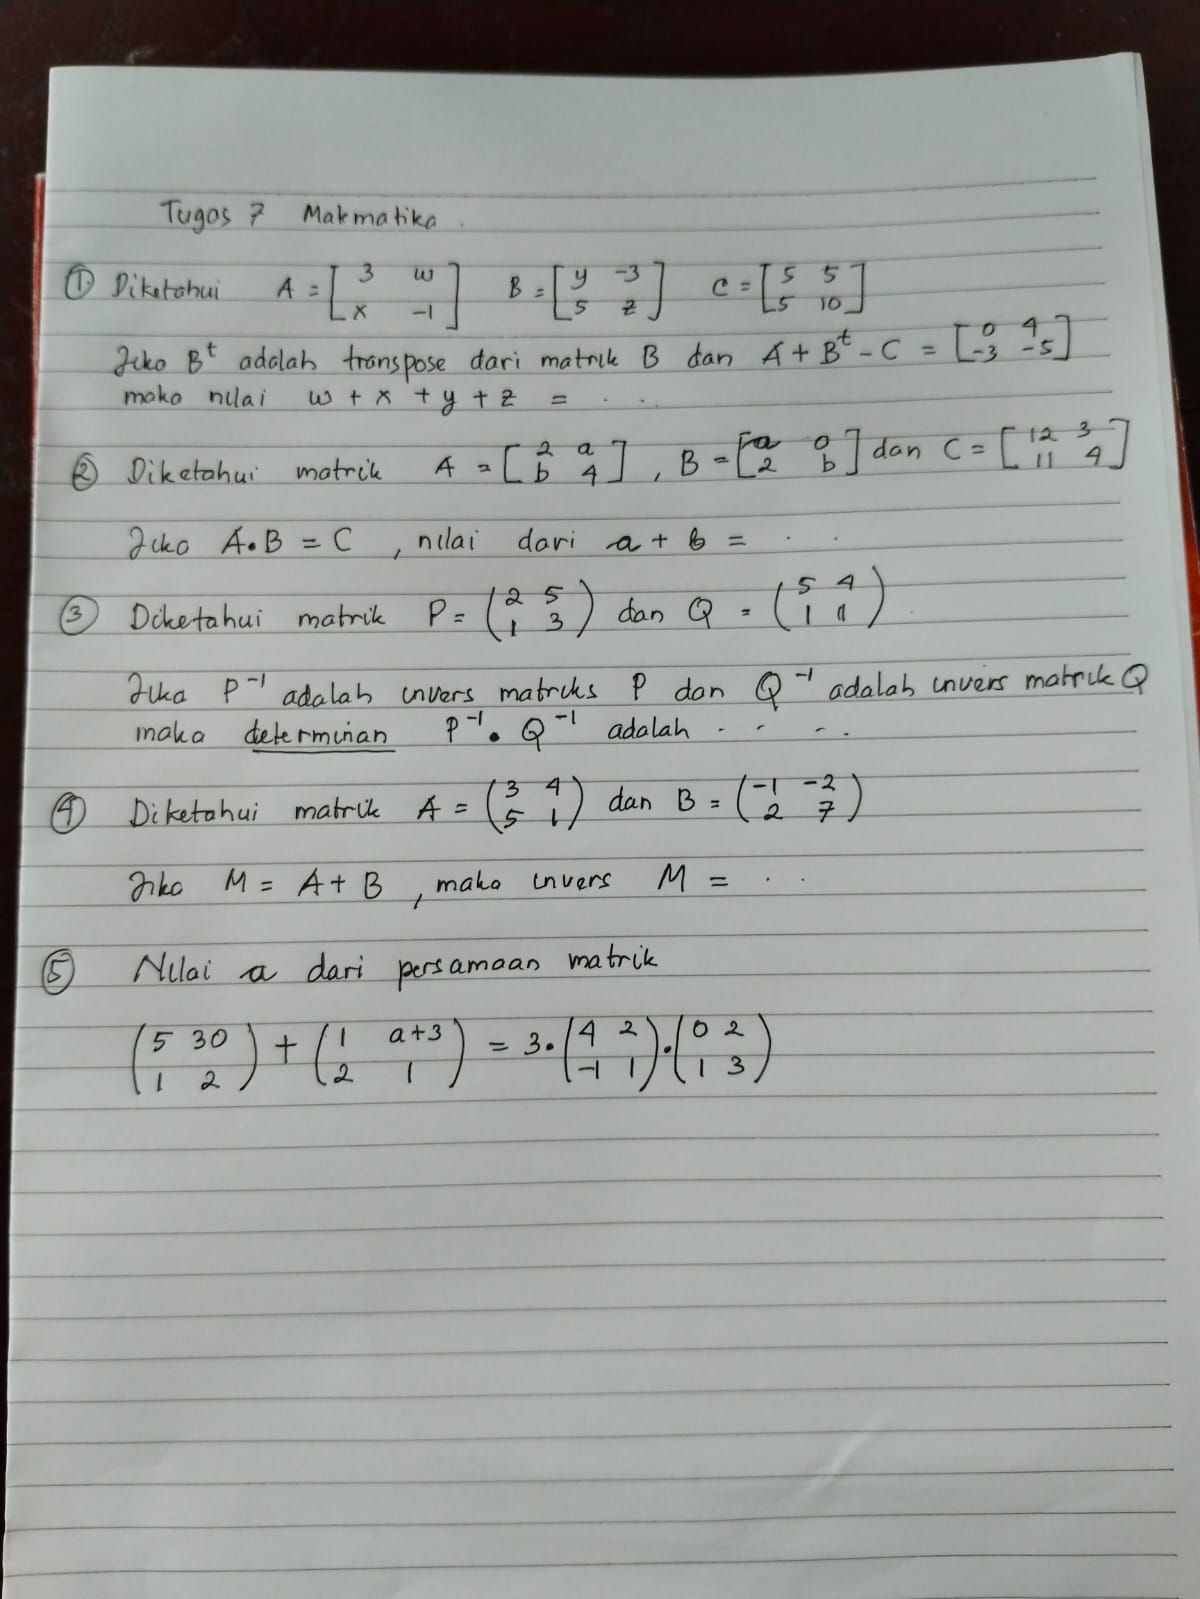 Tugas 7 Matematika.
① Diketahui A = [3 w; x -1] B = [y -3; 5 z] C = [5 5; 5 10]
Jika Bᵗ adalah transpose dari matrik B dan A + Bᵗ - C = [0 4; -3 -5]
maka nilai w + x + y + z = ...
② Diketahui matrik A = [2 a; b 4], B = [a 0; 2 b] dan C = [12 3; 11 4]
Jika A•B = C, nilai dari a + b = ..
③ Diketahui matrik P = (2 5; 1 3) dan Q = (5 4; 1 1)
Jika P⁻¹ adalah invers matriks P dan Q⁻¹ adalah invers matrik Q
maka determinan P⁻¹ • Q⁻¹ adalah ....
④ Diketahui matrik A = (3 4; 5 1) dan B = (-1 -2; 2 7)
Jika M = A + B, maka invers M = ..
⑤ Nilai a dari persamaan matrik
(5 30; 1 2) + (1 a+3; 2 1) = 3•(4 2; -1 1)•(0 2; 1 3)